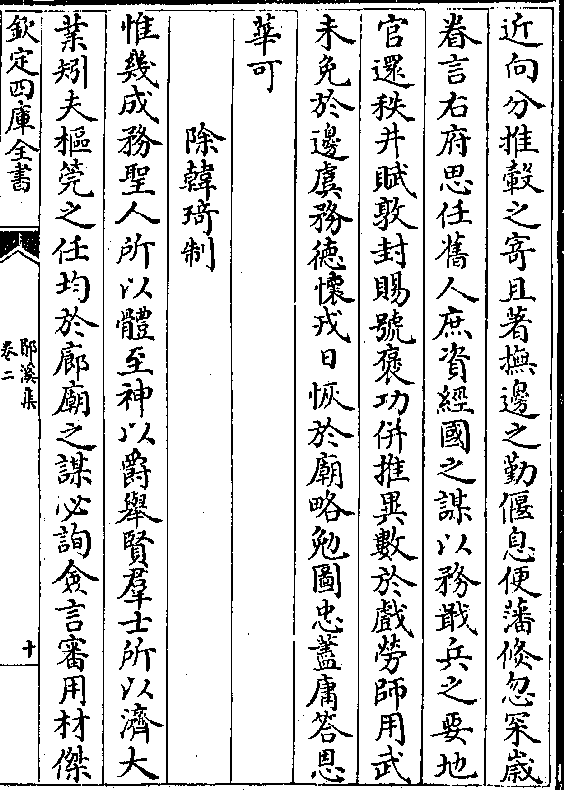 近向分推轂之寄且著撫邊之勤偃息便藩倐忽罙嵗
眷言右府思任舊人庶資經國之謀以務戢兵之要地
官還秩井賦敦封賜號褒功併推異數於戲勞師用武
未免於邊虞務德懷戎日恢於廟略勉圖忠藎庸答恩
華可
除韓琦制
惟幾成務聖人所以體至神以爵舉賢羣士所以濟大
業矧夫樞筦之任均於廊廟之謀必詢僉言審用材傑
欽定四庫全書
鄖溪集
卷二
十